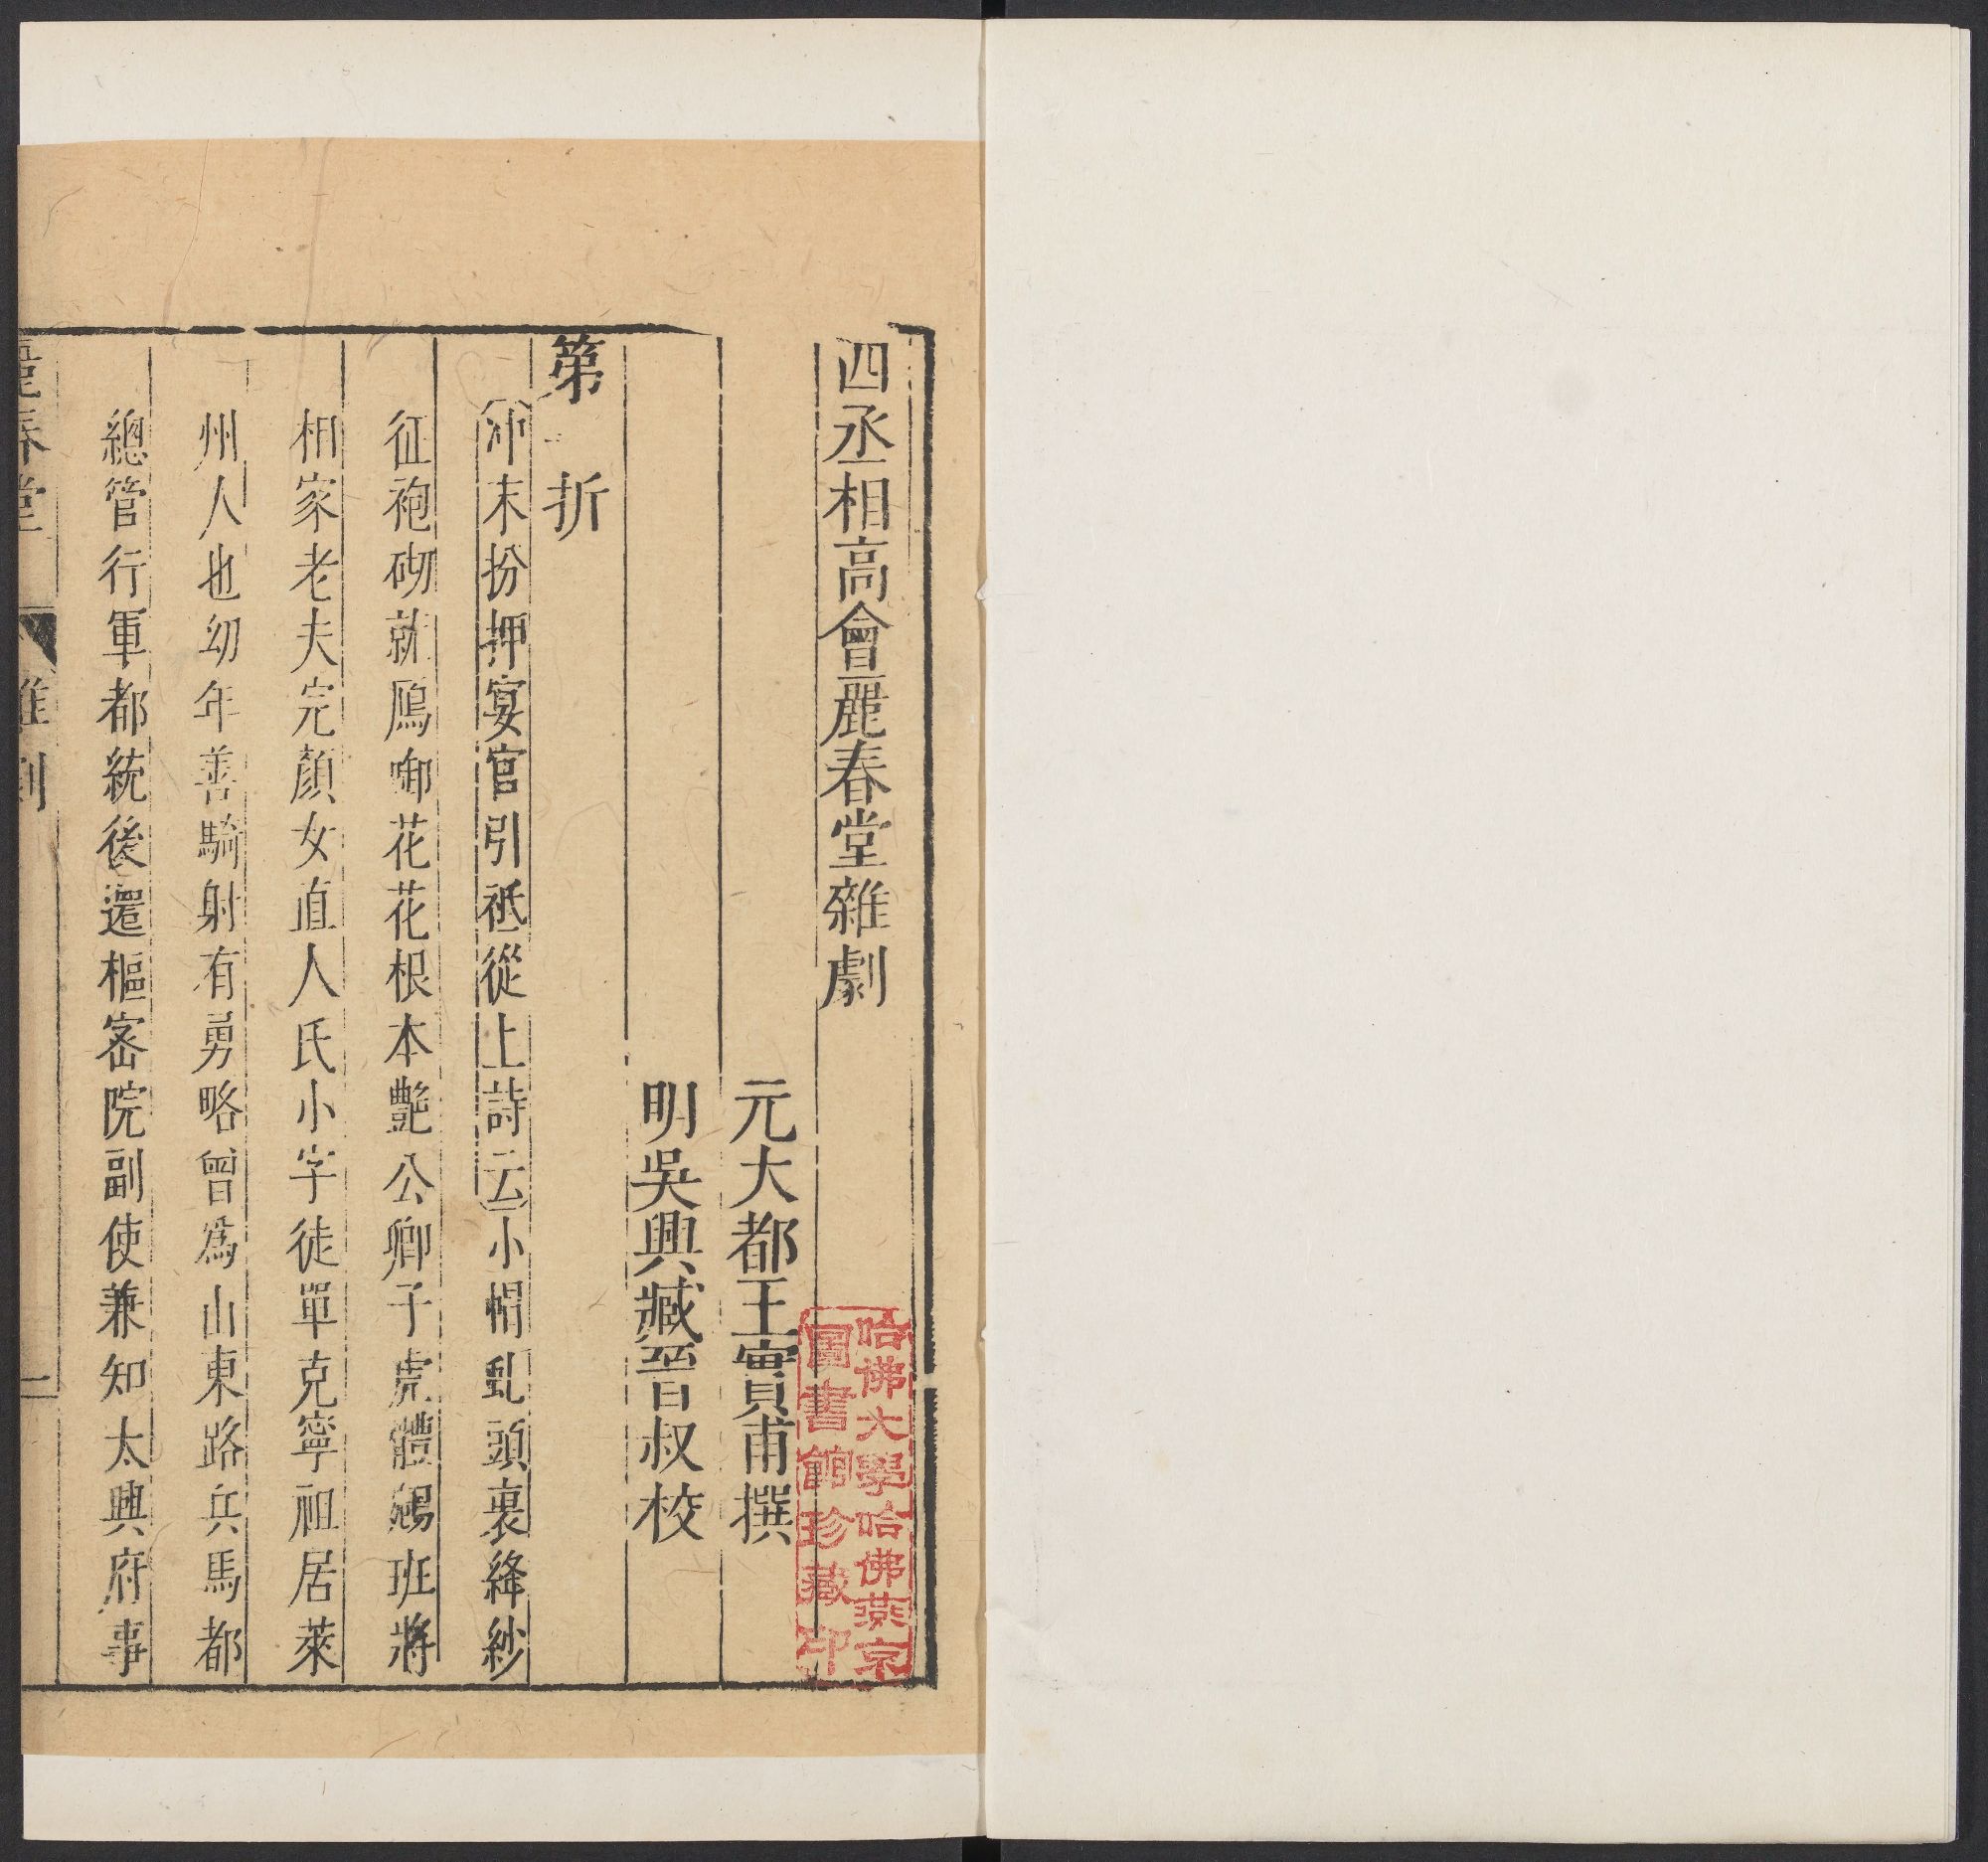 四丞相高會麗春堂雜劇
元大都王實甫撰
明吳興臧晉叔校
第一折
沖末扮押宴官引祗從上詩云小帽虬頭裹絳紗
征袍砌就鴈啣花花根本艷公卿子虎體鵷班將
相家老夫完顏女直人氏小字徒單克寧祖居萊
州人也幼年善騎射有勇略曾爲山東路兵馬都
總管行軍都統後遷樞密院副使兼知大興府事
麗春堂 雜劇 一
哈佛大學哈佛燕京
圖書館珍藏印